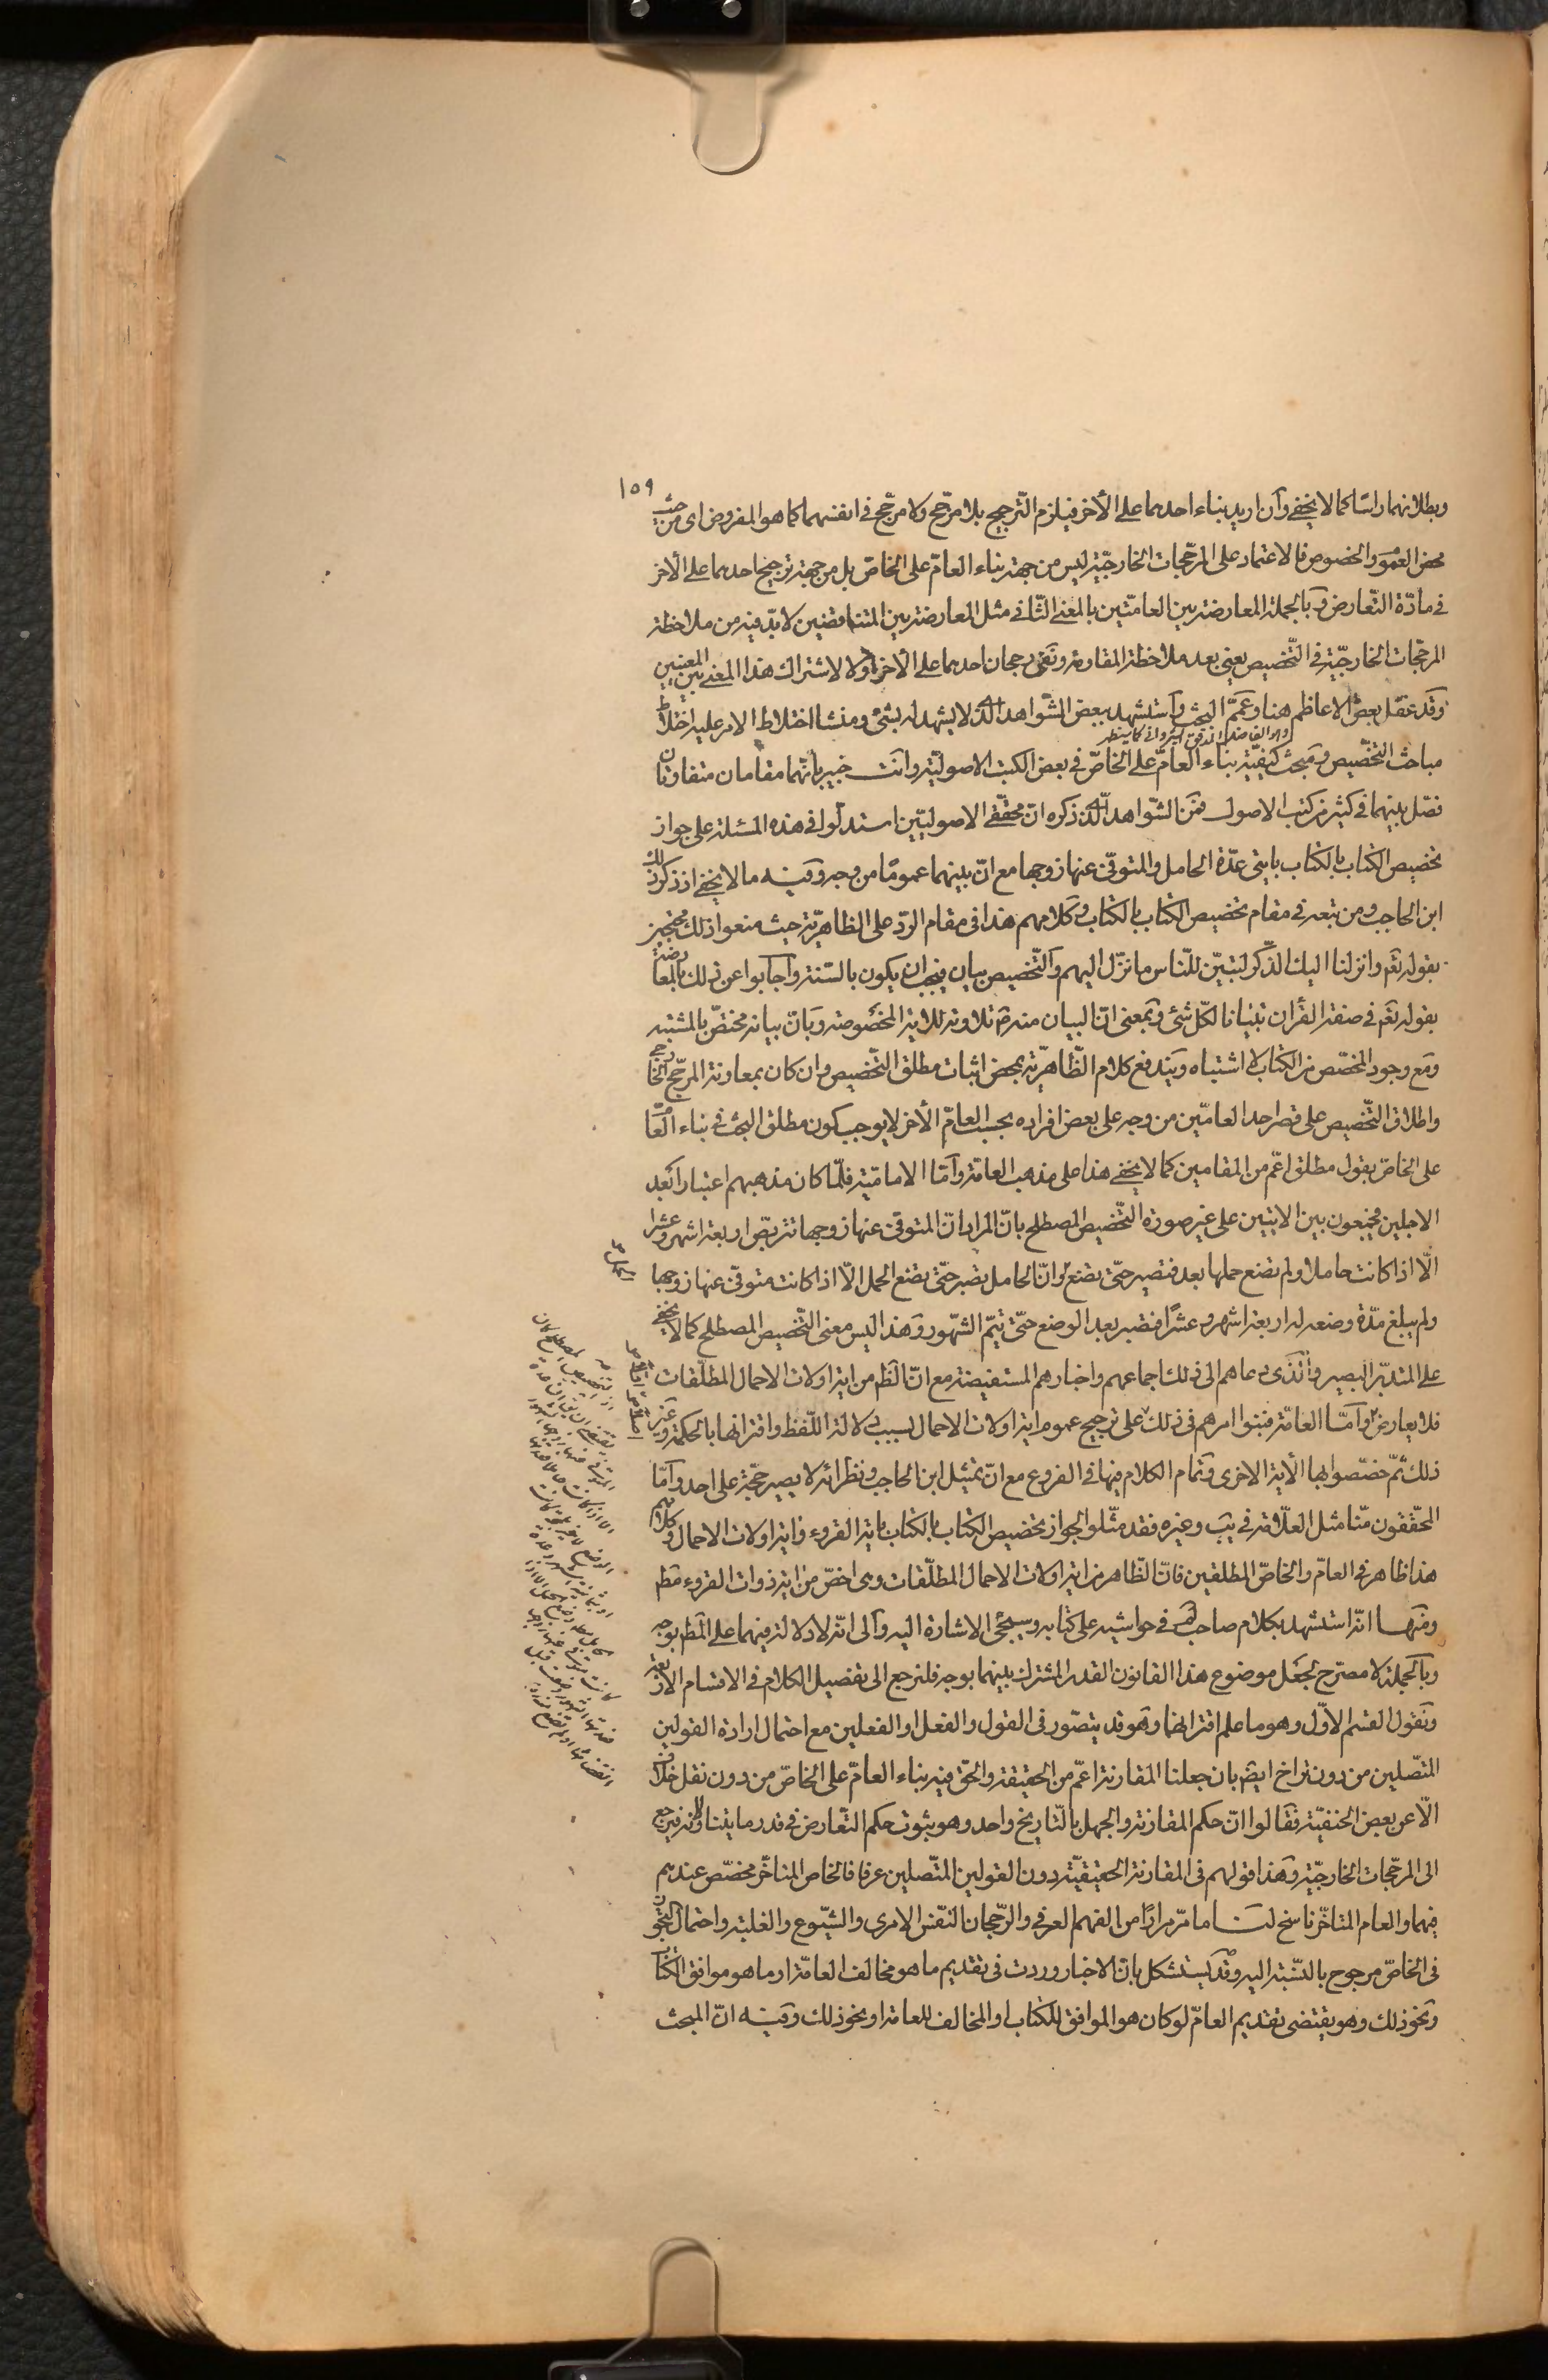 ١٥٩
وبطلانهما راسا كما لا يخفى وان اريد بناء احدهما على الأخر فيلزم التّرجيح بلا مرجّح ولا مرجّح فى انفسهما كما هو المفروض اى من حيث
محض العموم والخصوص فالاعتماد على المرجّحات الخارجيّة ليس من جهة بناء العامّ على الخاصّ بل من جهة ترجيح احدهما على الأخر
فى مادّة التّعارض وبالجملة المعارضة بين العامّين بالمعنى الثّانى مثل المعارضة بين المتناقضين لا بدّ فيه من ملاحظة
المرجّحات الخارجيّة فى التّخصيص يعنى بعد ملاحظة المقاومة ونفى رجحان احدهما على الأخر اولا لاشتراك هذا المعنى بين المعنيين
وقد غفل بعض الاعاظم هنا وعمّم البحث واستشهد ببعض الشّواهد الّذى لا يشهد له بشئ ومنشا اختلاط الامر عليه اختلاط
مباحث التّخصيص ومبحث كيفيّة بناء العامّ على الخاصّ فى بعض الكتب الاصوليّة وانت خبير بانّهما مقامان متفاوتان
فصّل بينهما فى كثير من كتب الاصول فمن الشّواهد الّذى ذكره انّ محقّقى الاصوليّين استدلّوا فى هذه المسئلة على جواز
تخصيص الكتاب بالكتاب بايتى عدّة الحامل والمتوفّى عنها زوجها مع انّ بينهما عموما من وجه وفيه ما لا يخفى اذ ذكر ذلك
ابن الحاجب ومن تبعه فى مقام تخصيص الكتاب بالكتاب وكلامهم هذا فى مقام الرّد على الظاهريّة حيث منعوا ذلك محتجّين
بقوله تعم وانزلنا اليك الذّكر لتبيّن للنّاس ما نزّل اليهم والتّخصيص بيان فيجب ان يكون بالسّنة واجابوا عن ذلك بالمعارضة
بقوله تعم فى صفة القرأن تبيانا لكلّ شئ وبمعنى انّ البيان منه ص تلاوته للاية المخصوصة وبانّ بيانه مختصّ بالمشتبه
ومع وجود المخصّص من الكتاب لا اشتباه ويندفع كلام الظّاهريّة بمحض اثبات مطلق التّخصيص وان كان بمعاونة المرجّح الخارجى
واطلاق التّخصيص على قصر احد العامّين من وجه على بعض افراده بحسب العامّ الأخر لا يوجب كون مطلق البحث فى بناء العامّ
على الخاصّ بقول مطلق اعمّ من المقامين كما لا يخفى هذا على مذهب العامّة وامّا الاماميّة فلمّا كان مذهبهم اعتبار ابعد
الاجلين فيجمعون بين الايتين على غير صورة التّخصيص المصطلح بانّ المراد انّ المتوفّى عنها زوجها تتربّص اربعة اشهر وعشرا
الّا اذا كانت حاملا ولم تضع حملها بعد فتصبر حتّى تضع وانّ الحامل تصبر حتّى تضع الحمل الّا اذا كانت متوفّى عنها زوجها
ولم يبلغ مدّة وضعه له اربعة اشهر وعشرا فتصبر بعد الوضع حتّى تتمّ الشّهور وهذا ليس معنى التّخصيص المصطلح كما لا يخفى
على المتدبّر البصير والّذى دعاهم الى ذلك اجماعهم واخبارهم المستفيضة مع انّ الظم من اية اولات الاحمال المطلّقات
فلا يعارض وامّا العامّة فبنوا امرهم فى ذلك على ترجيح عموم اية اولات الاحمال بسبب دلالة اللّفظ واقترانها بالحكمة وغير
ذلك ثمّ خصّصوا بها الأية الاخرى وتمام الكلام فيها فى الفروع مع انّ تمثيل ابن الحاجب ونظرائه لا يصير حجّة على احد وامّا
المحقّقون منّا مثل العلّامة فى يب وغيره فقد مثّلوا لجواز تخصيص الكتاب بالكتاب باية القروء واية اولات الاحمال وكلامهم
هذا ظاهر فى العامّ والخاصّ المطلقين فانّ الظّاهر من اية اولات الاحمال المطلّقات وهى اخصّ من اية ذوات القروء مطم
ومنها انّه استشهد بكلام صاحب لم فى حواشيه على كتابه وسيجئ الاشارة اليه والى انّه لا دلالة فيهما على المطم بوجه
وبالجملة لا مصرّح لجعل موضوع هذا القانون القدر المشترك بينهما بوجه فلنرجع الى تفصيل الكلام فى الاقسام الاربعة
ونقول القسم الاوّل وهو ما علم اقترانهما وهو قد يتصوّر فى القول والفعل او الفعلين مع احتمال ارادة القولين
المتّصلين من دون تراخ ايضم بان جعلنا المقارنة اعمّ من الحقيقة والحق فيه بناء العامّ على الخاصّ من دون نقل خلاف
الّا عن بعض الحنفيّة فقالوا انّ حكم المقارنة والجهل بالتّاريخ واحد وهو ثبوت حكم التّعارض فى قدر ما يتناولانه فيرجع
الى المرجّحات الخارجيّة وهذا قولهم فى المقارنة الحقيقيّة دون القولين المتّصلين عرفا فالخاص المتاخّر مخصّص عندهم
فيهما والعام المتاخّر ناسخ لنا ما مرّ مرارا من الفهم العرفى والرّجحان النّفس الامرى والشّيوع والغلبة واحتمال التجوّز
فى الخاصّ مرجوح بالنّسبة اليه وقد يستشكل بانّ الاخبار وردت فى تقديم ما هو مخالف العامّة او ما هو موافق الكتاب
ونحو ذلك وهو يقتضى تقديم العامّ لو كان هو الموافق للكتاب او المخالف للعامة او نحو ذلك وفيه انّ المبحث